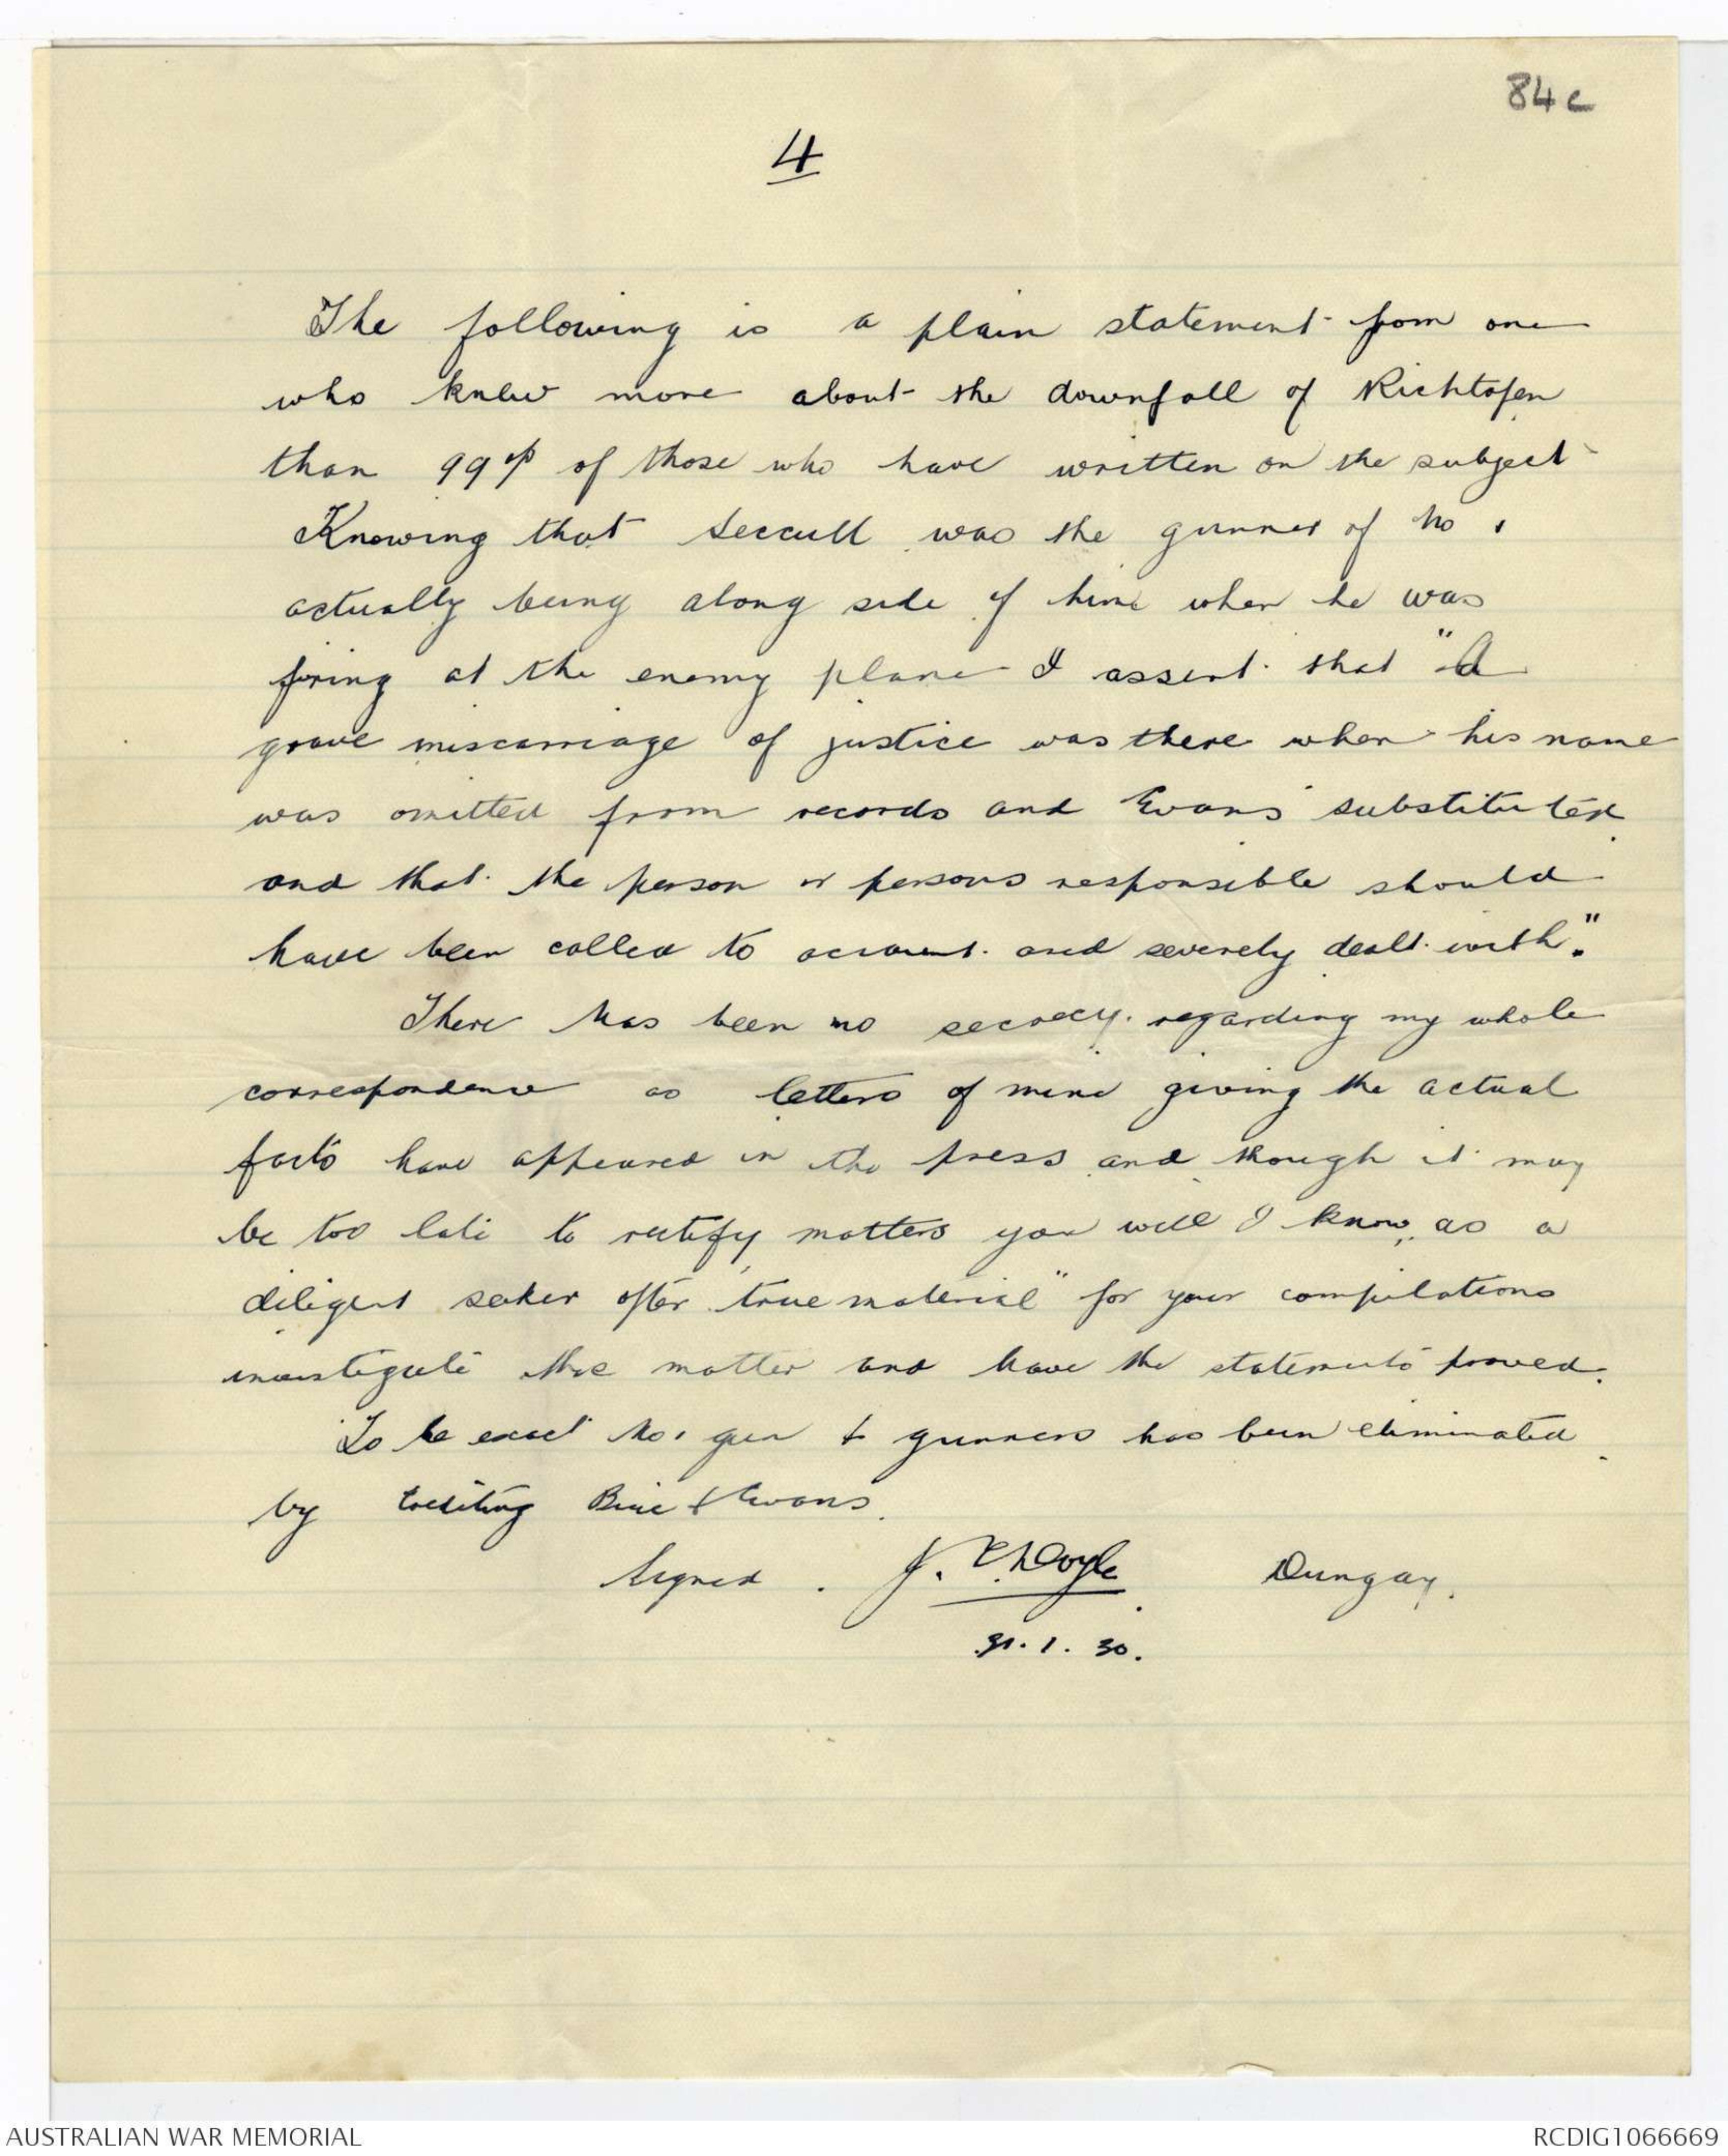 84c
4
The following is a plain statement from one
who knew more about the downfall of Richtofen
than 99% of those who have written on the subject
Knowing that Seccull was the gunner of No 1
actually being along side of him when he was
firing at the enemy plane I assert that "A
grave miscarriage of justice was there when his name
was omitted from records and Evans substituted
and that the person or persons responsible should
have been called to account and severely dealt with".
There has been no secrecy regarding my whole
correspondence as letters of mine giving the actual
facts have appeared in the press and though it may
be too late to rectify matters you will I know, as a
diligent seeker after "true material" for your compilations
investigate this matter and have the statements proved.
To be exact No 1 gun & gunners has been eliminated
by crediting Buie & Evans.
Signed. J. Doyle Dungay.
31.1.30.
AUSTRALIAN WAR MEMORIAL
RCDIG1066669